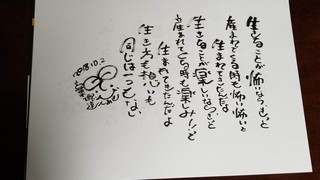 生きることが怖いなら、きっと
産まれてくる時も怖い怖いと
生まれてきたんだな
生きることが楽しいなら、きっと
産まれてくる時も楽しみ
生まれてきたんだよ
生き方も想いも
同じは一つもない
2018.10.2